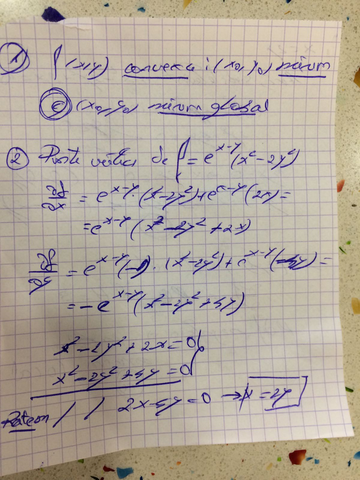 ① f(x,y) convexa i (x0,y0) mínim
ⓒ (x0,y0) mínim global
② Punts crítics de f = e^{x-y}(x²-2y²)
∂f/∂x = e^{x-y}·(x²-2y²)+e^{x-y}(2x)=
= e^{x-y}(x²-2y²+2x)
∂f/∂y = e^{x-y}(-1)·(x²-2y²)+e^{x-y}(-4y)=
= -e^{x-y}(x²-2y²+4y)
x²-2y²+2x=0
x²-2y²+4y=0
2x-4y=0 → x=2y